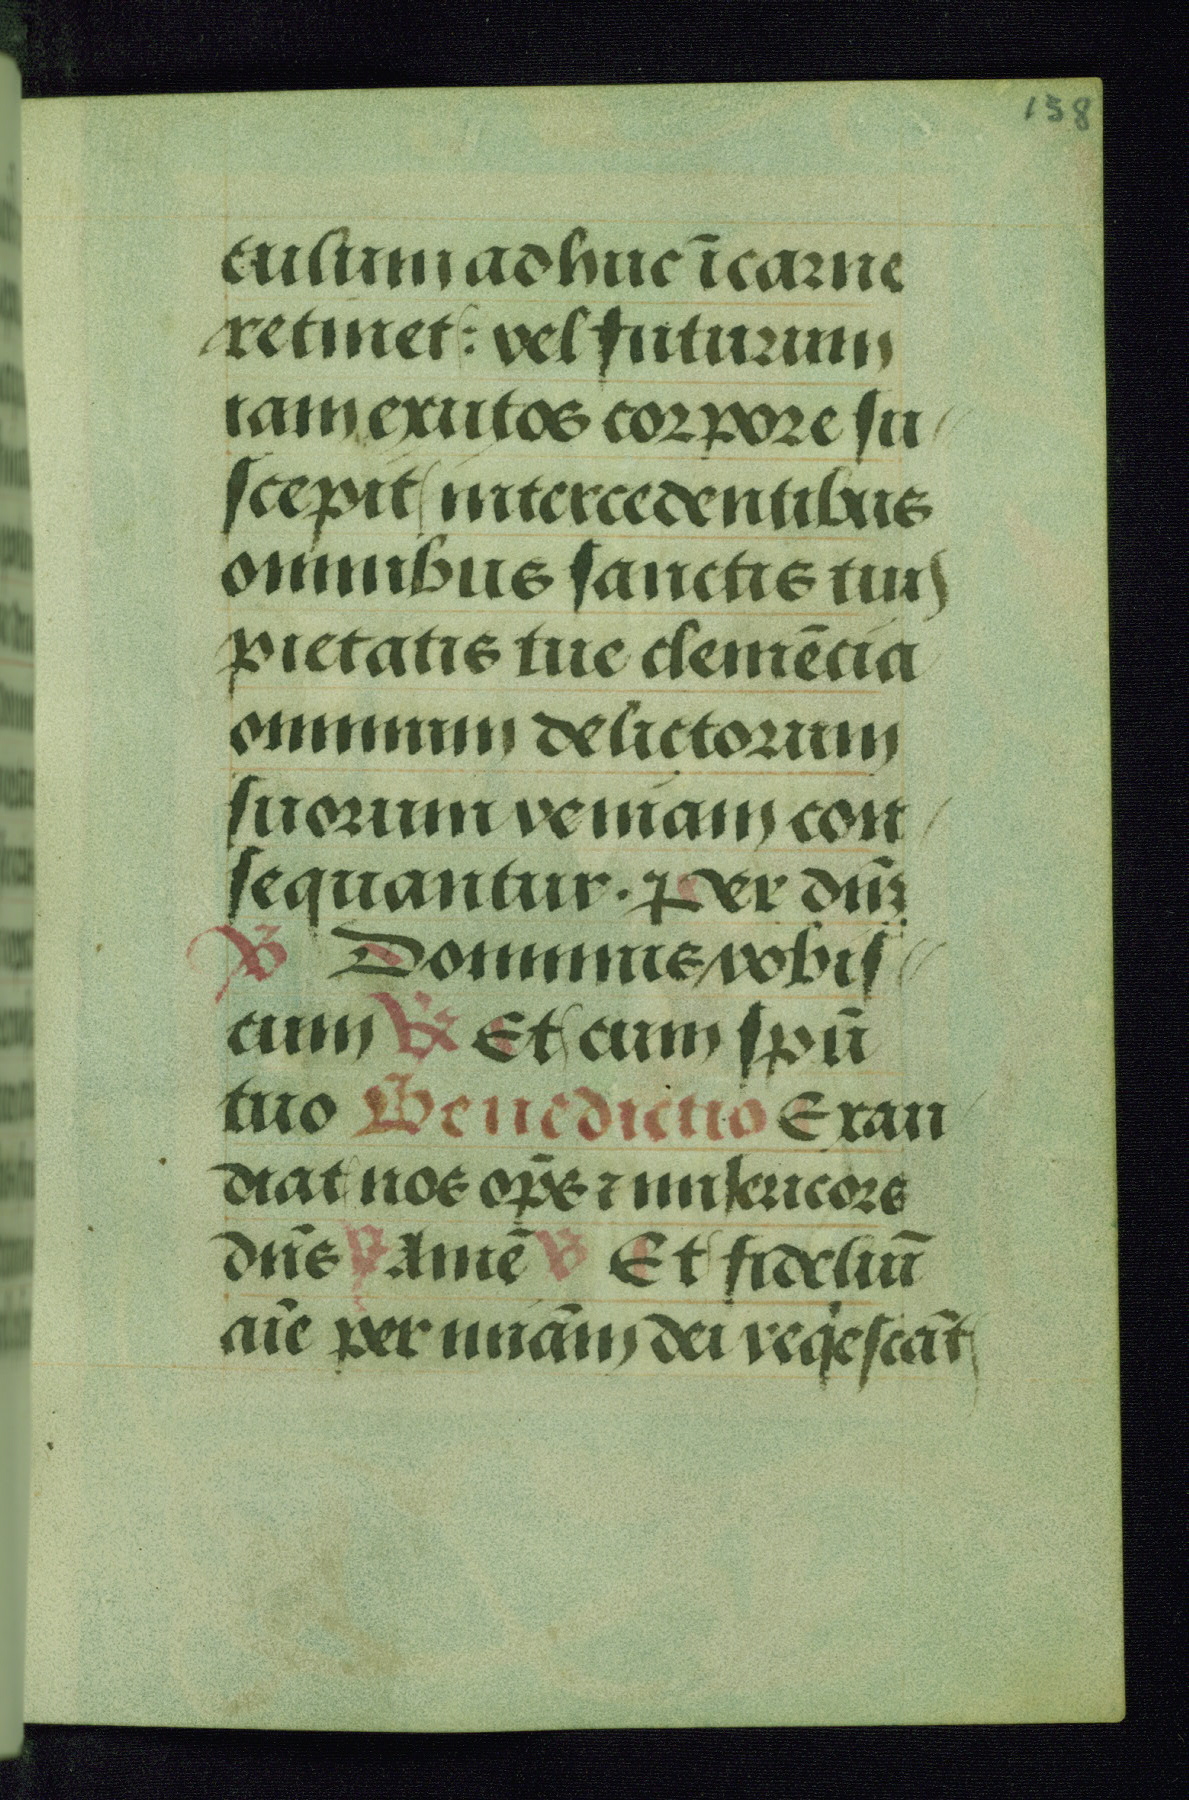 158
culum adhuc ī carne
retinet: vel futurum
iam exutos corpore su
scepit intercedentibus
omnibus sanctis tuis
pietatis tue clemēcia
omnium delictorum
suorum veniam con
sequantur. Per dn̄z
℣ Dominus vobis
cum ℟ Et cum spū
tuo Benedictio Exau
diat nos op̄s ⁊ misericors
dn̄s ℟ Amē ℣ Et fideliū
aīe per miām dei reqͥescāt